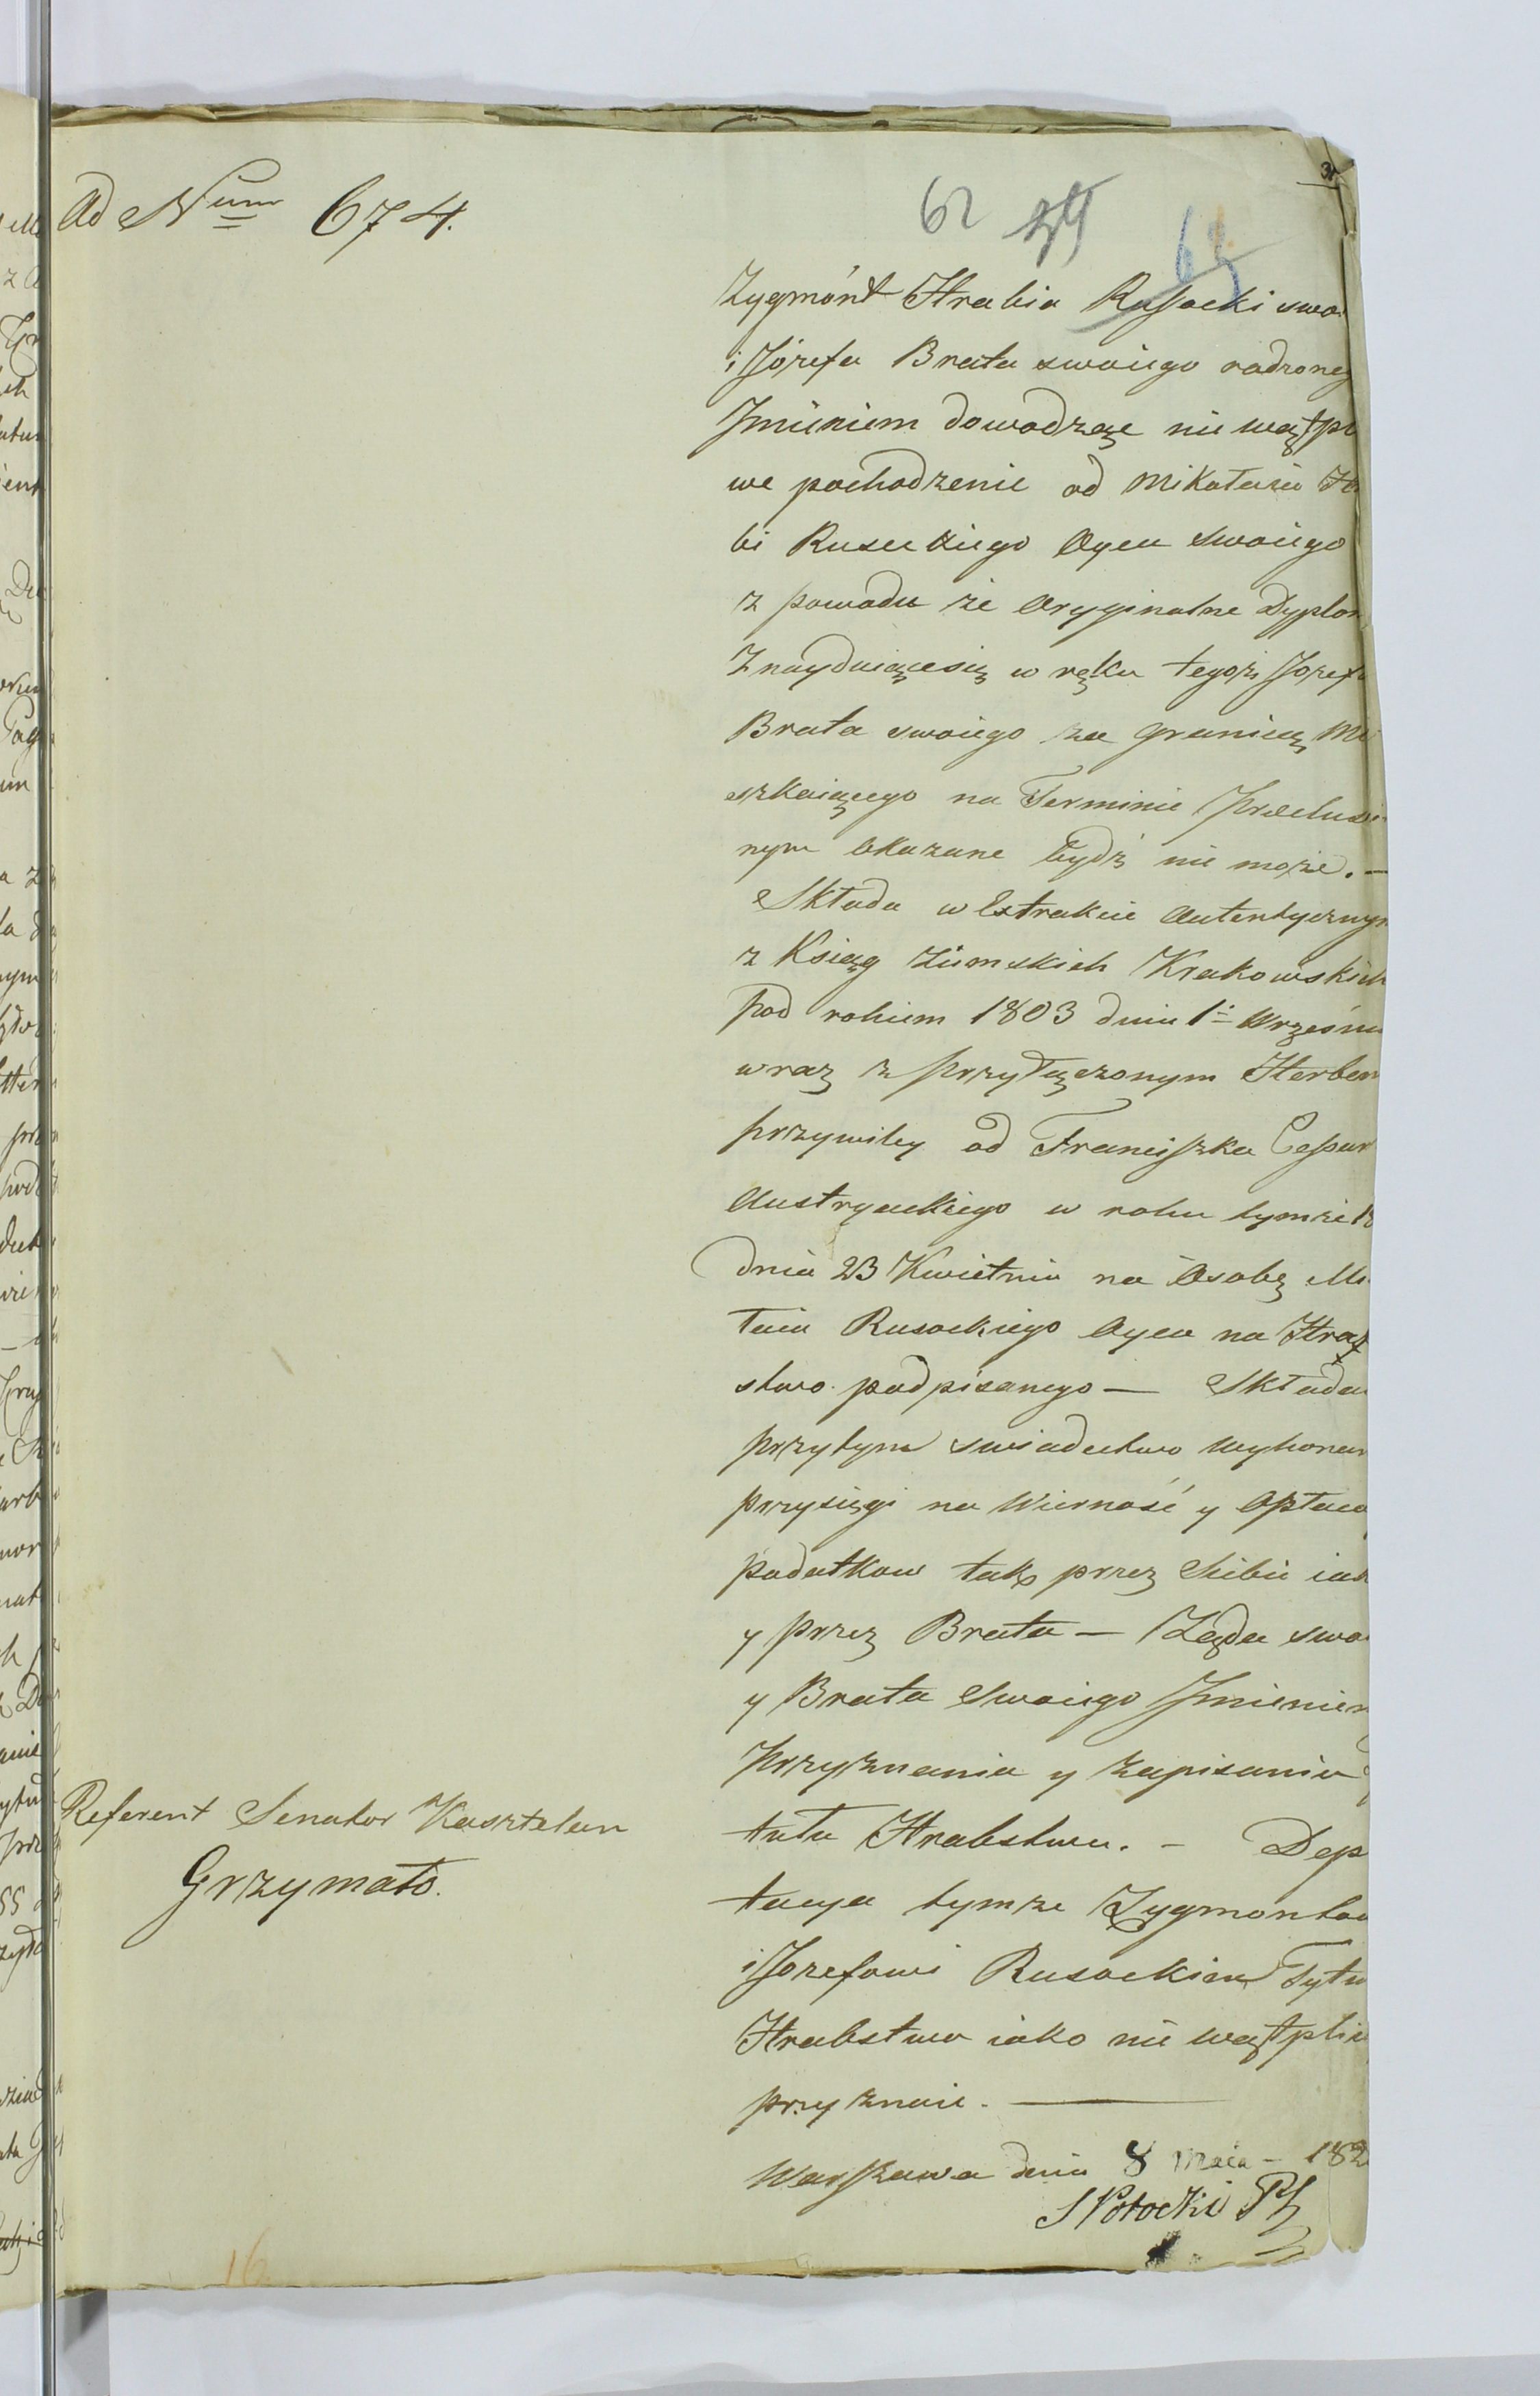 Ad Num 674.
62 39
Zygmónt Hrabia Russocki swo
i Józefa Brata swoiego rodzoneg
Jmieniem dowodząc nie wątpl
we pochodzenie od Mikołaia H
bi Rusuckiego Oyca swoiego
z powodu że Oryginalne Dyplom
Znayduiącesię w ręku tegoż Jozef
Brata swoiego za granicą Mi
eszkaiącego na Terminie Preclusi
nym Okazane bydź nie może. —
Składa w Extrakcie Autentycznym
z Ksiąg Ziemskich Krakowskich
pod rokiem 1803 dniu 1º Wrześni
wraz z przyłączonym Herbem
przywiley od Franciszka Cesar
Austryackiego w roku tymże 18
dnia 23 Kwietnia na Osobę Mi
łaia Rusockiego Oyca na Hra
stwo podpisanego — Składa
przytym swiadectwo wykonan
przysięgi na Wierność y Opłaca
podatkow tak przez Siebie iak
y przez Brata — Żąda swo
y Brata Swoiego Jmieniem
przyznania y zapisania
tułu Hrabstwa. — Dep
tacya tymże Zygmontow
i Jozefowi Rusockim Tytu
Hrabstwa iako nie wątpliw
przyznaie. —
Warszawa dnia 8 Maia — 182
S Potocki PS
Referent Senator Kasztelan
Grzymało.
16